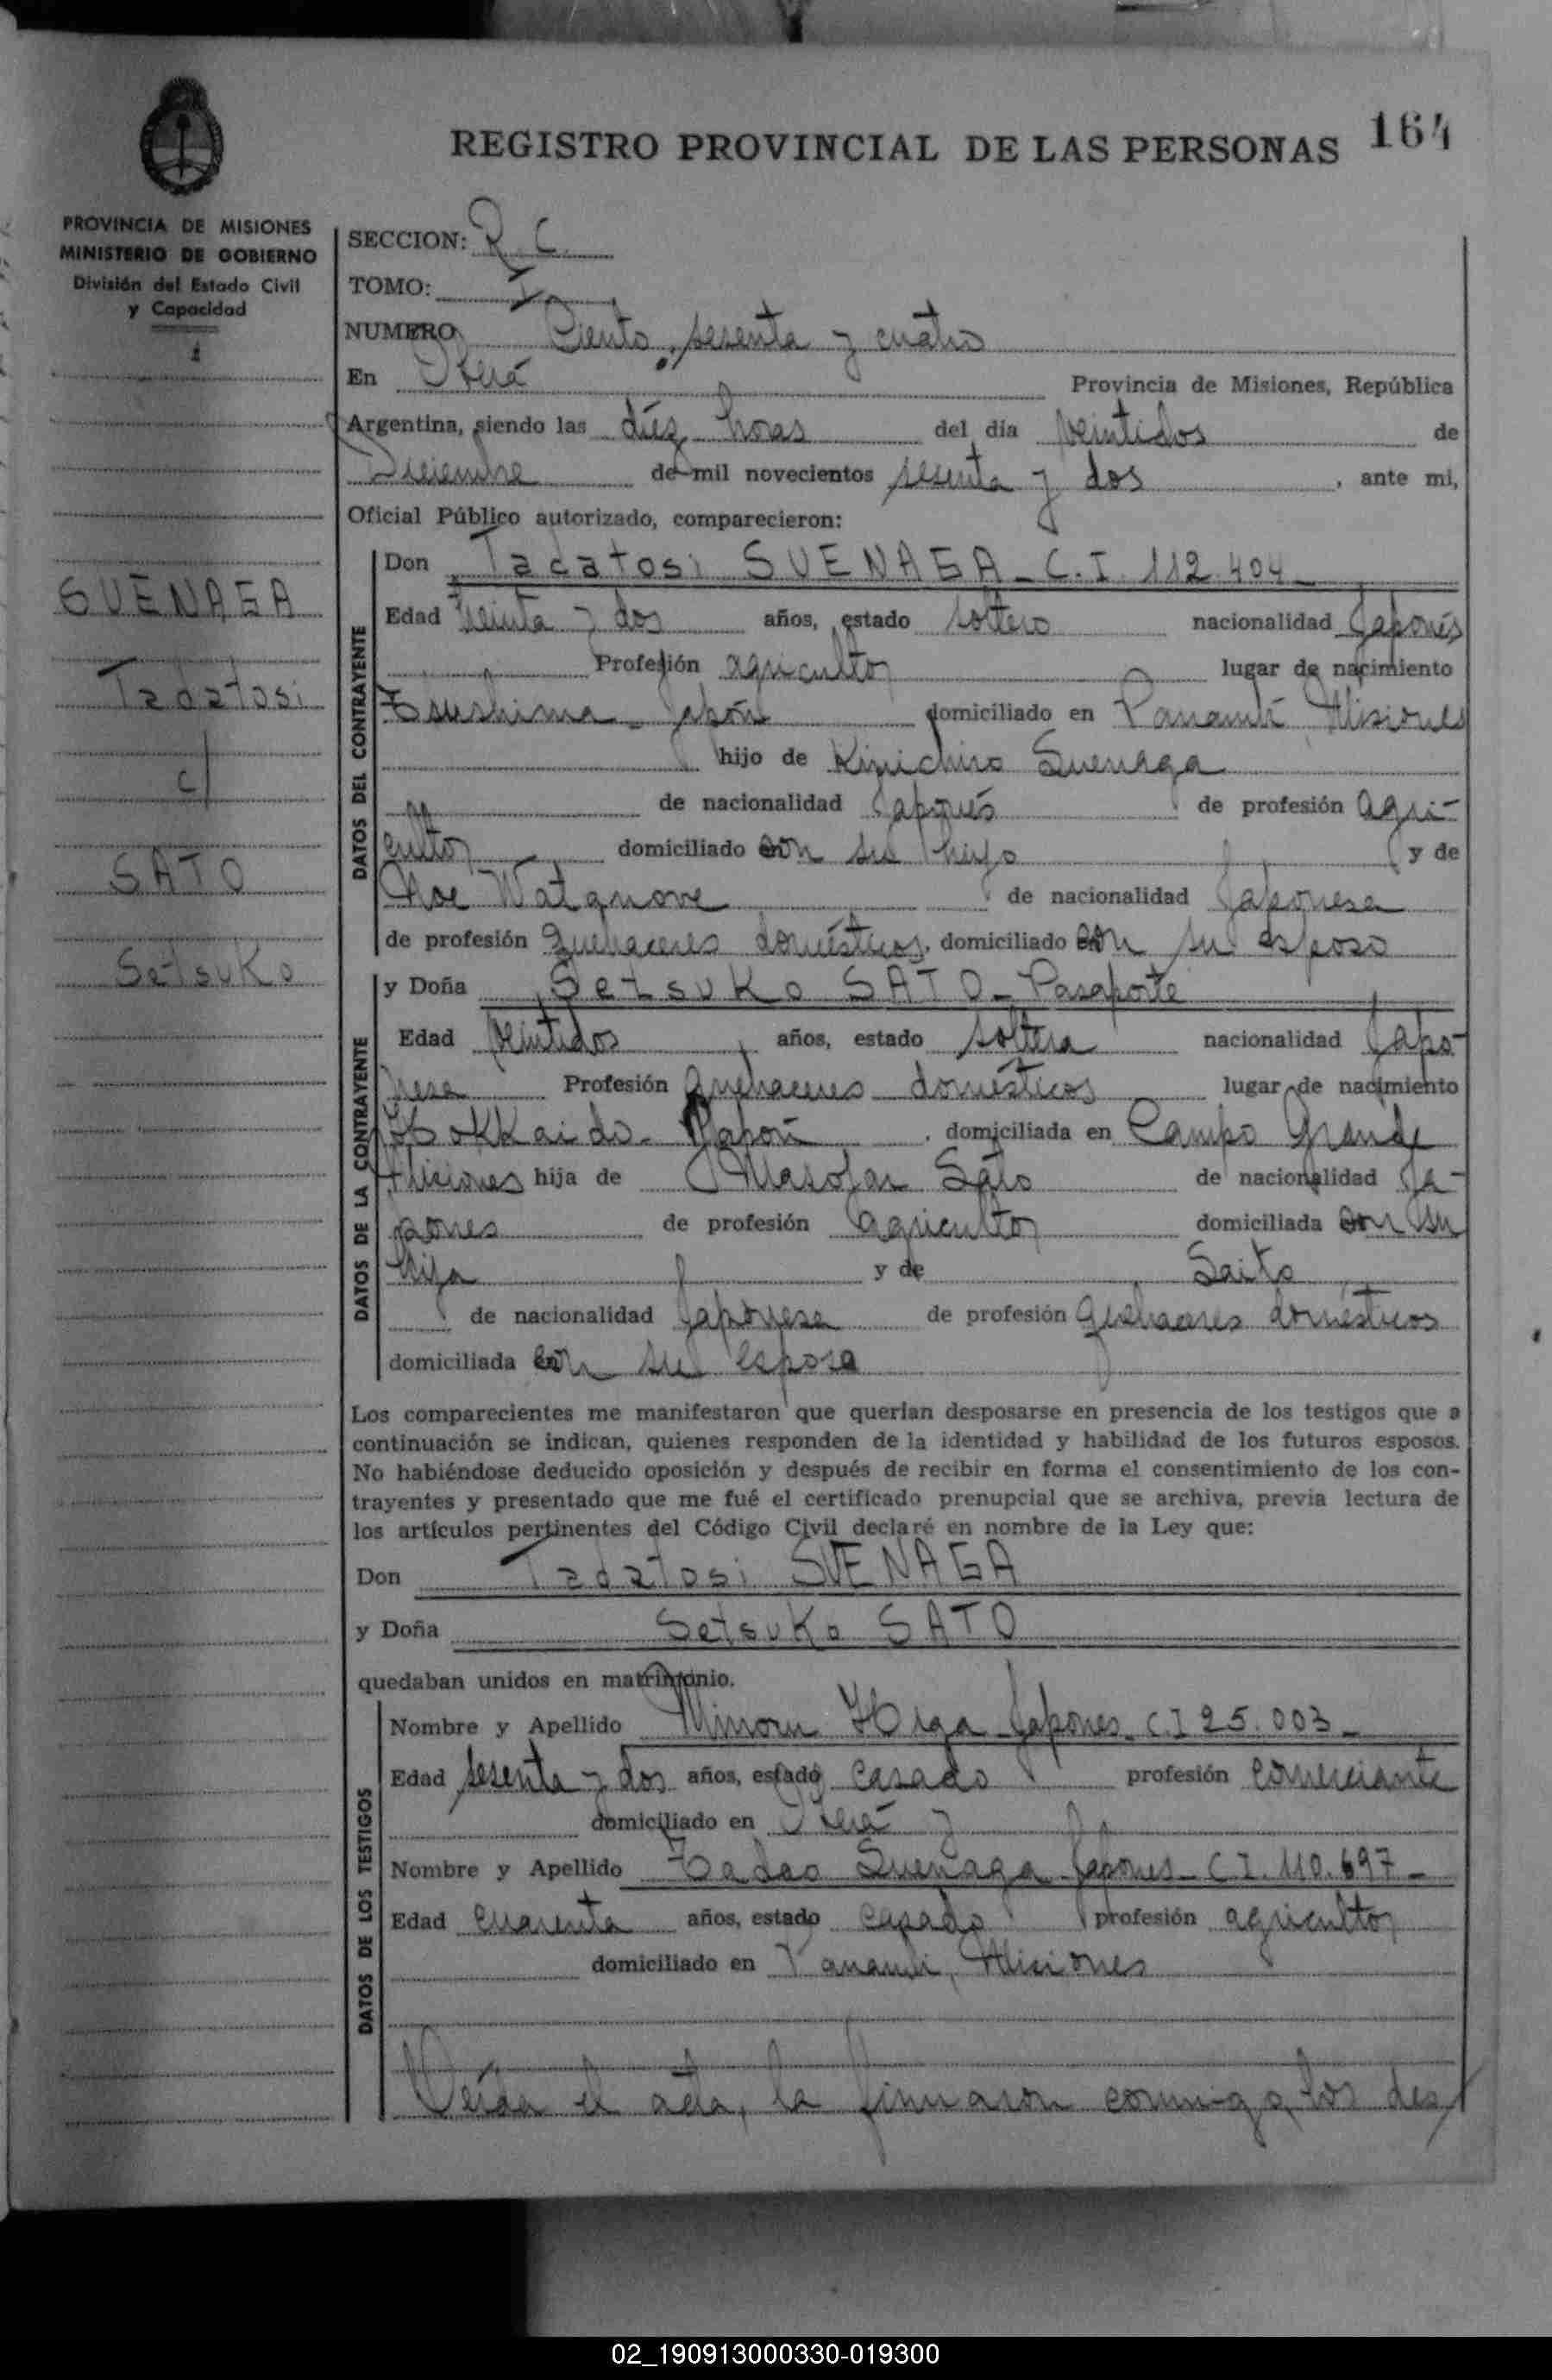 164
REGISTRO PROVINCIAL DE LAS PERSONAS
PROVINCIA DE MISIONES
MINISTERIO DE GOBIERNO
División del Estado Civil
y Capacidad
SUENAGA
Tadatosi
c/
SATO
Setsuko
SECCION: R. C.
TOMO: I
NUMERO Ciento sesenta y cuatro
En Oberá Provincia de Misiones, República
Argentina, siendo las diéz horas del día veintidos de
Diciembre de mil novecientos sesenta y dos, ante mi,
Oficial Público autorizado, comparecieron:
DATOS DEL CONTRAYENTE
Don Tadatosi SUENAGA - C. I. 112.404 -
Edad treinta y dos años, estado soltero nacionalidad Japonés
Profesión agricultor lugar de nacimiento
Tsushima - Japón domiciliado en Panambí Misiones
hijo de Kinichiro Suenaga
de nacionalidad Japonés de profesión agri-
cultor domiciliado con su hijo y de
de nacionalidad Japonesa
de profesión quehaceres domésticos, domiciliado con su esposo
DATOS DE LA CONTRAYENTE
y Doña Setsuko SATO - Pasaporte
Edad veintidos años, estado soltera nacionalidad Japo-
nesa Profesión quehaceres domésticos lugar de nacimiento
Hokkaido - Japón, domiciliada en Campo Grande
Misiones hija de Sato de nacionalidad Ja-
pones de profesión agricultor domiciliada con su
hija y de Saito
de nacionalidad Japonesa de profesión quehaceres domésticos
domiciliada con su esposo
Los comparecientes me manifestaron que querían desposarse en presencia de los testigos que a
continuación se indican, quienes responden de la identidad y habilidad de los futuros esposos.
No habiéndose deducido oposición y después de recibir en forma el consentimiento de los con-
trayentes y presentado que me fué el certificado prenupcial que se archiva, previa lectura de
los artículos pertinentes del Código Civil declaré en nombre de la Ley que:
Don Tadatosi SUENAGA
y Doña Setsuko SATO
quedaban unidos en matrimonio.
DATOS DE LOS TESTIGOS
Nombre y Apellido Minoru Higa - Japones - C. I 25.003 -
Edad sesenta y dos años, estado casado profesión comerciante
domiciliado en Oberá y
Nombre y Apellido Tadao Suenaga - Japones - C I. 110.697 -
Edad cuarenta años, estado casado profesión agricultor
domiciliado en Panambí, Misiones
Leída el acta, la firmaron conmigo, los des/
02_190913000330-019300